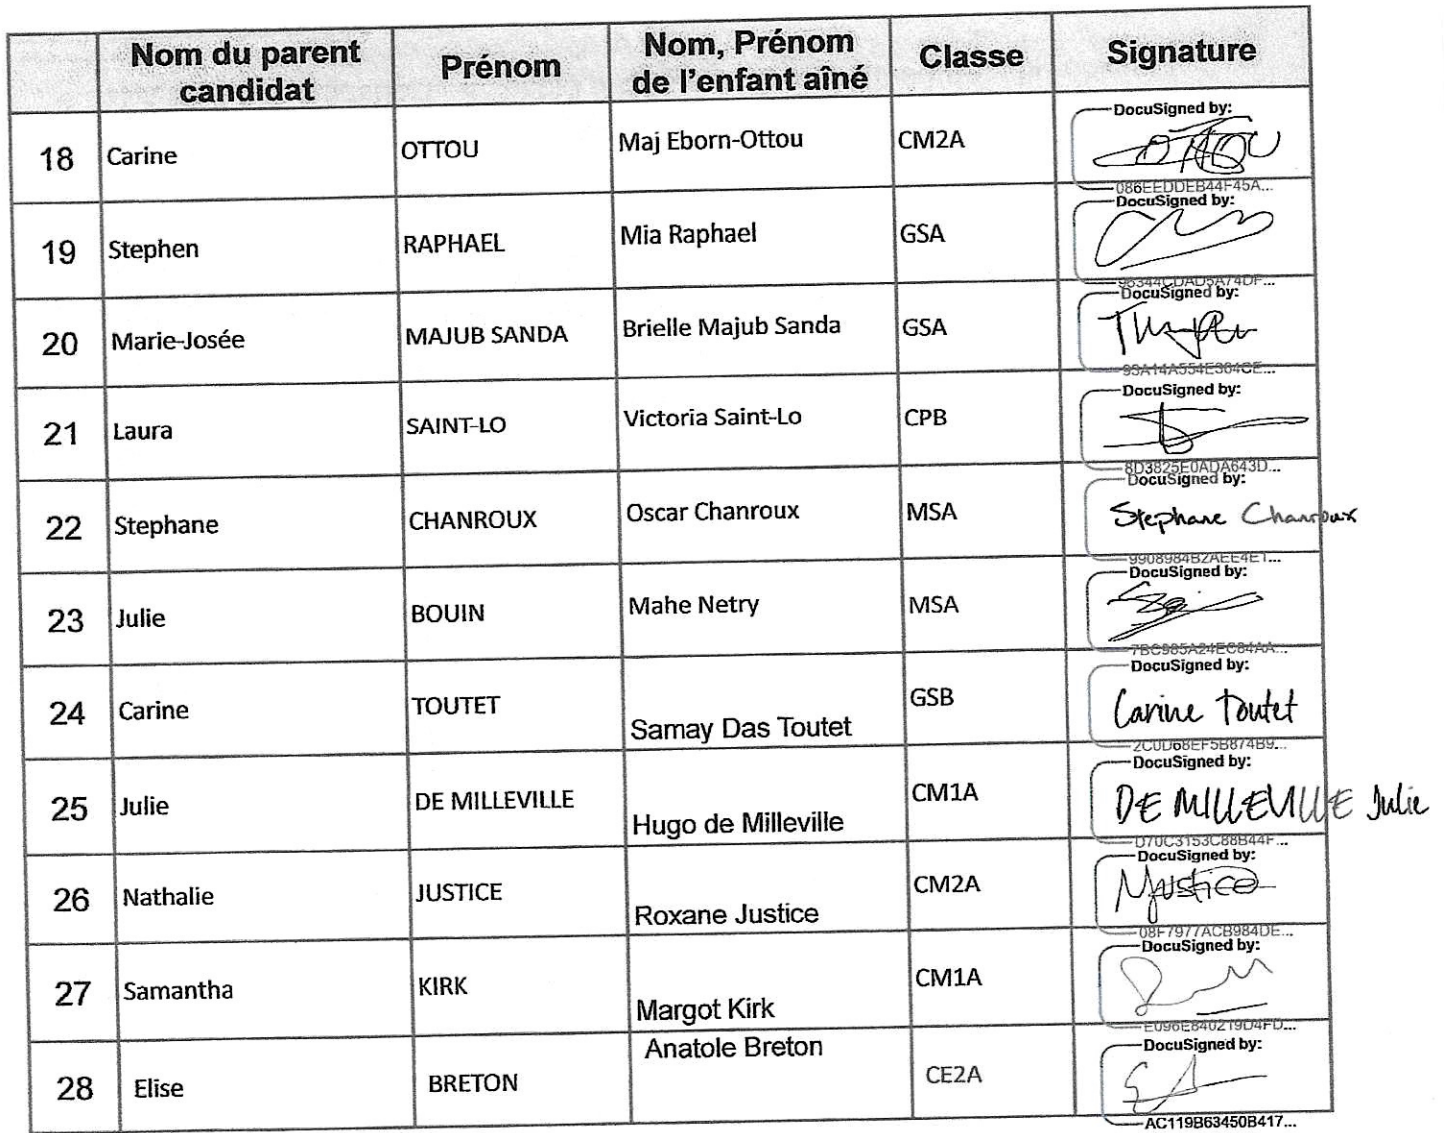 Nom du parent candidat Prénom Nom, Prénom de l'enfant aîné Classe Signature
18 Carine OTTOU Maj Eborn-Ottou CM2A DocuSigned by:
086EEDDEB44F45A...
19 Stephen RAPHAEL Mia Raphael GSA DocuSigned by:
96344CDAD5A74DF...
20 Marie-Josée MAJUB SANDA Brielle Majub Sanda GSA DocuSigned by:
93A14A554E364CE...
21 Laura SAINT-LO Victoria Saint-Lo CPB DocuSigned by:
8D3825E0ADA643D...
22 Stephane CHANROUX Oscar Chanroux MSA DocuSigned by: Stephane Chanroux
9908984B2AEE4E1...
23 Julie BOUIN Mahe Netry MSA DocuSigned by:
7BC985A24EC84AA...
24 Carine TOUTET Samay Das Toutet GSB DocuSigned by: Carine Toutet
2C0D68EF5B874B9...
25 Julie DE MILLEVILLE Hugo de Milleville CM1A DocuSigned by: DE MILLEVILLE Julie
D70C3153C88B44F...
26 Nathalie JUSTICE Roxane Justice CM2A DocuSigned by: NJustice
08F7977ACB984DE...
27 Samantha KIRK Margot Kirk CM1A DocuSigned by:
E096E840219D4FD...
28 Elise BRETON Anatole Breton CE2A DocuSigned by:
AC119B63450B417...